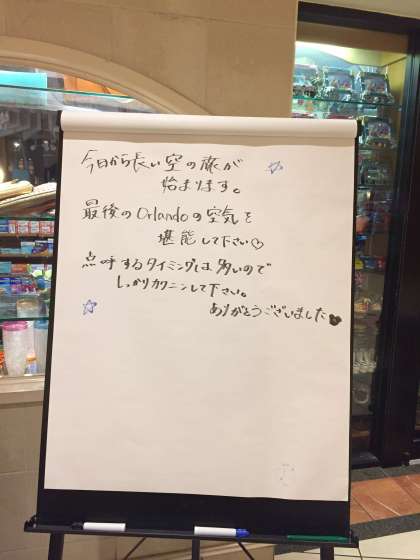 今日から長い空の旅が
始まります。
最後のOrlandoの空気を
堪能して下さい♡
点呼するタイミングは多いので
しっかりカクニンして下さい。
ありがとうございました